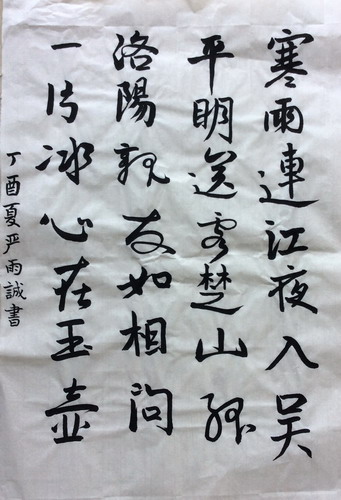 寒雨連江夜入吴
平明送客楚山孤
洛陽親友如相问
一片冰心在玉壶
丁酉夏严雨誠書